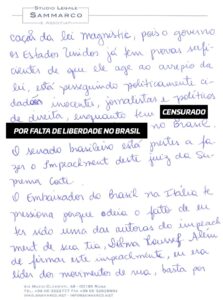 STUDIO LEGALE
SAMMARCO
& ASSOCIATI
cação da lei magnistic, pois o governo
os Estados Unidos já tem provas sufi-
cientes de que ele age ao arrepio da
lei, está perseguindo politicamente ci-
dadãos inocentes, jornalistas e políticos
de direita, enquanto tem
CENSURADO
POR FALTA DE LIBERDADE NO BRASIL
no Brasil.
O senado brasileiro está prestes a fa-
zer o Impeachment deste juiz da Su-
prema Corte.
O Embaixador do Brasil na Itália te
pessona porque odeia o fato de eu
ter sido uma das autoras do impeach-
ment de sua tia, Dilma Roussef. Além
de firmar este impeachment, eu era
líder dos movimentos de rua, basta por
VIA MUZIO CLEMENTI, 48 - 00193 ROMA